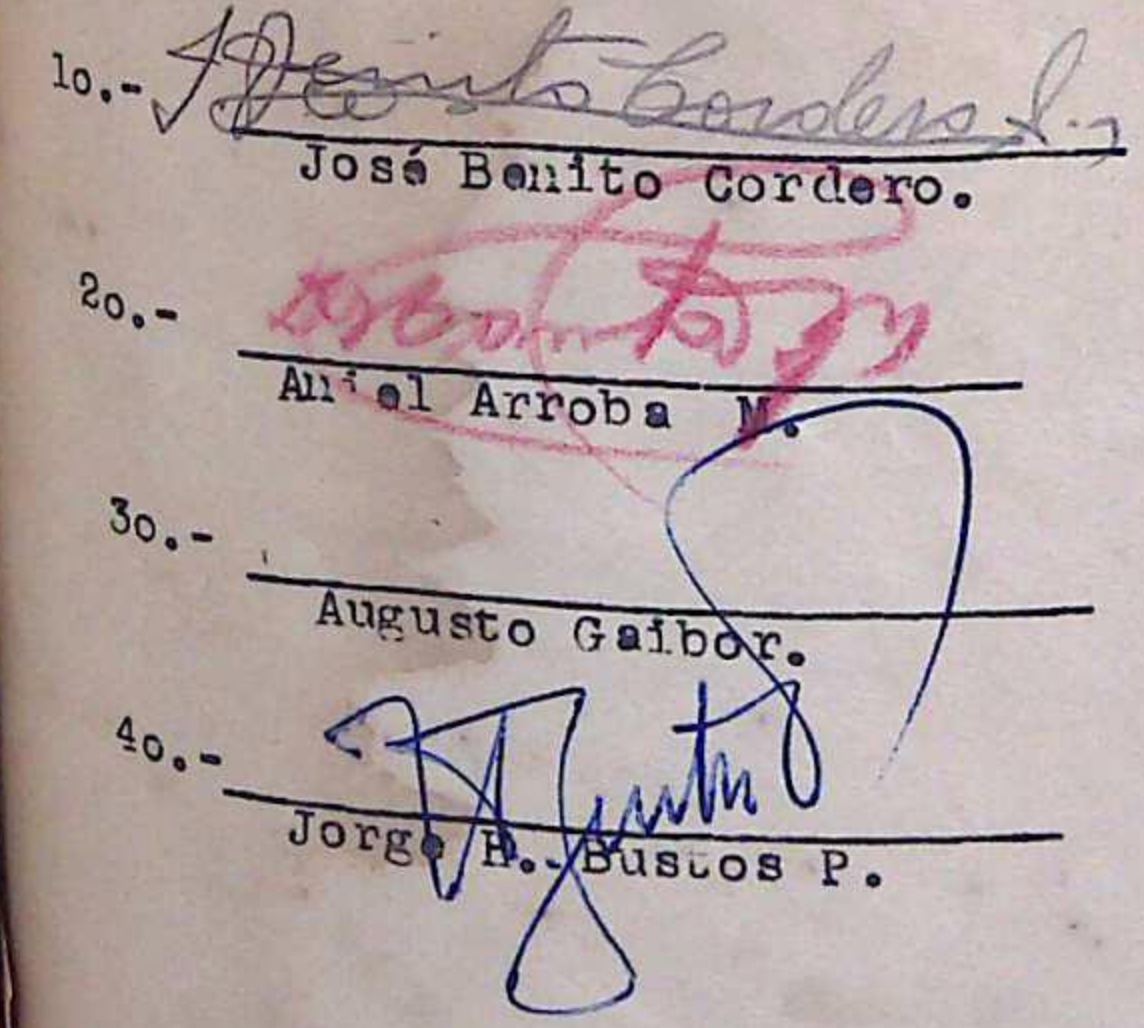 1o.- J Benito Cordero S.
José Benito Cordero.
2o.-
Arroba M.
3o.-
Augusto Gaibor.
4o.-
Jorge H. Bustos P.